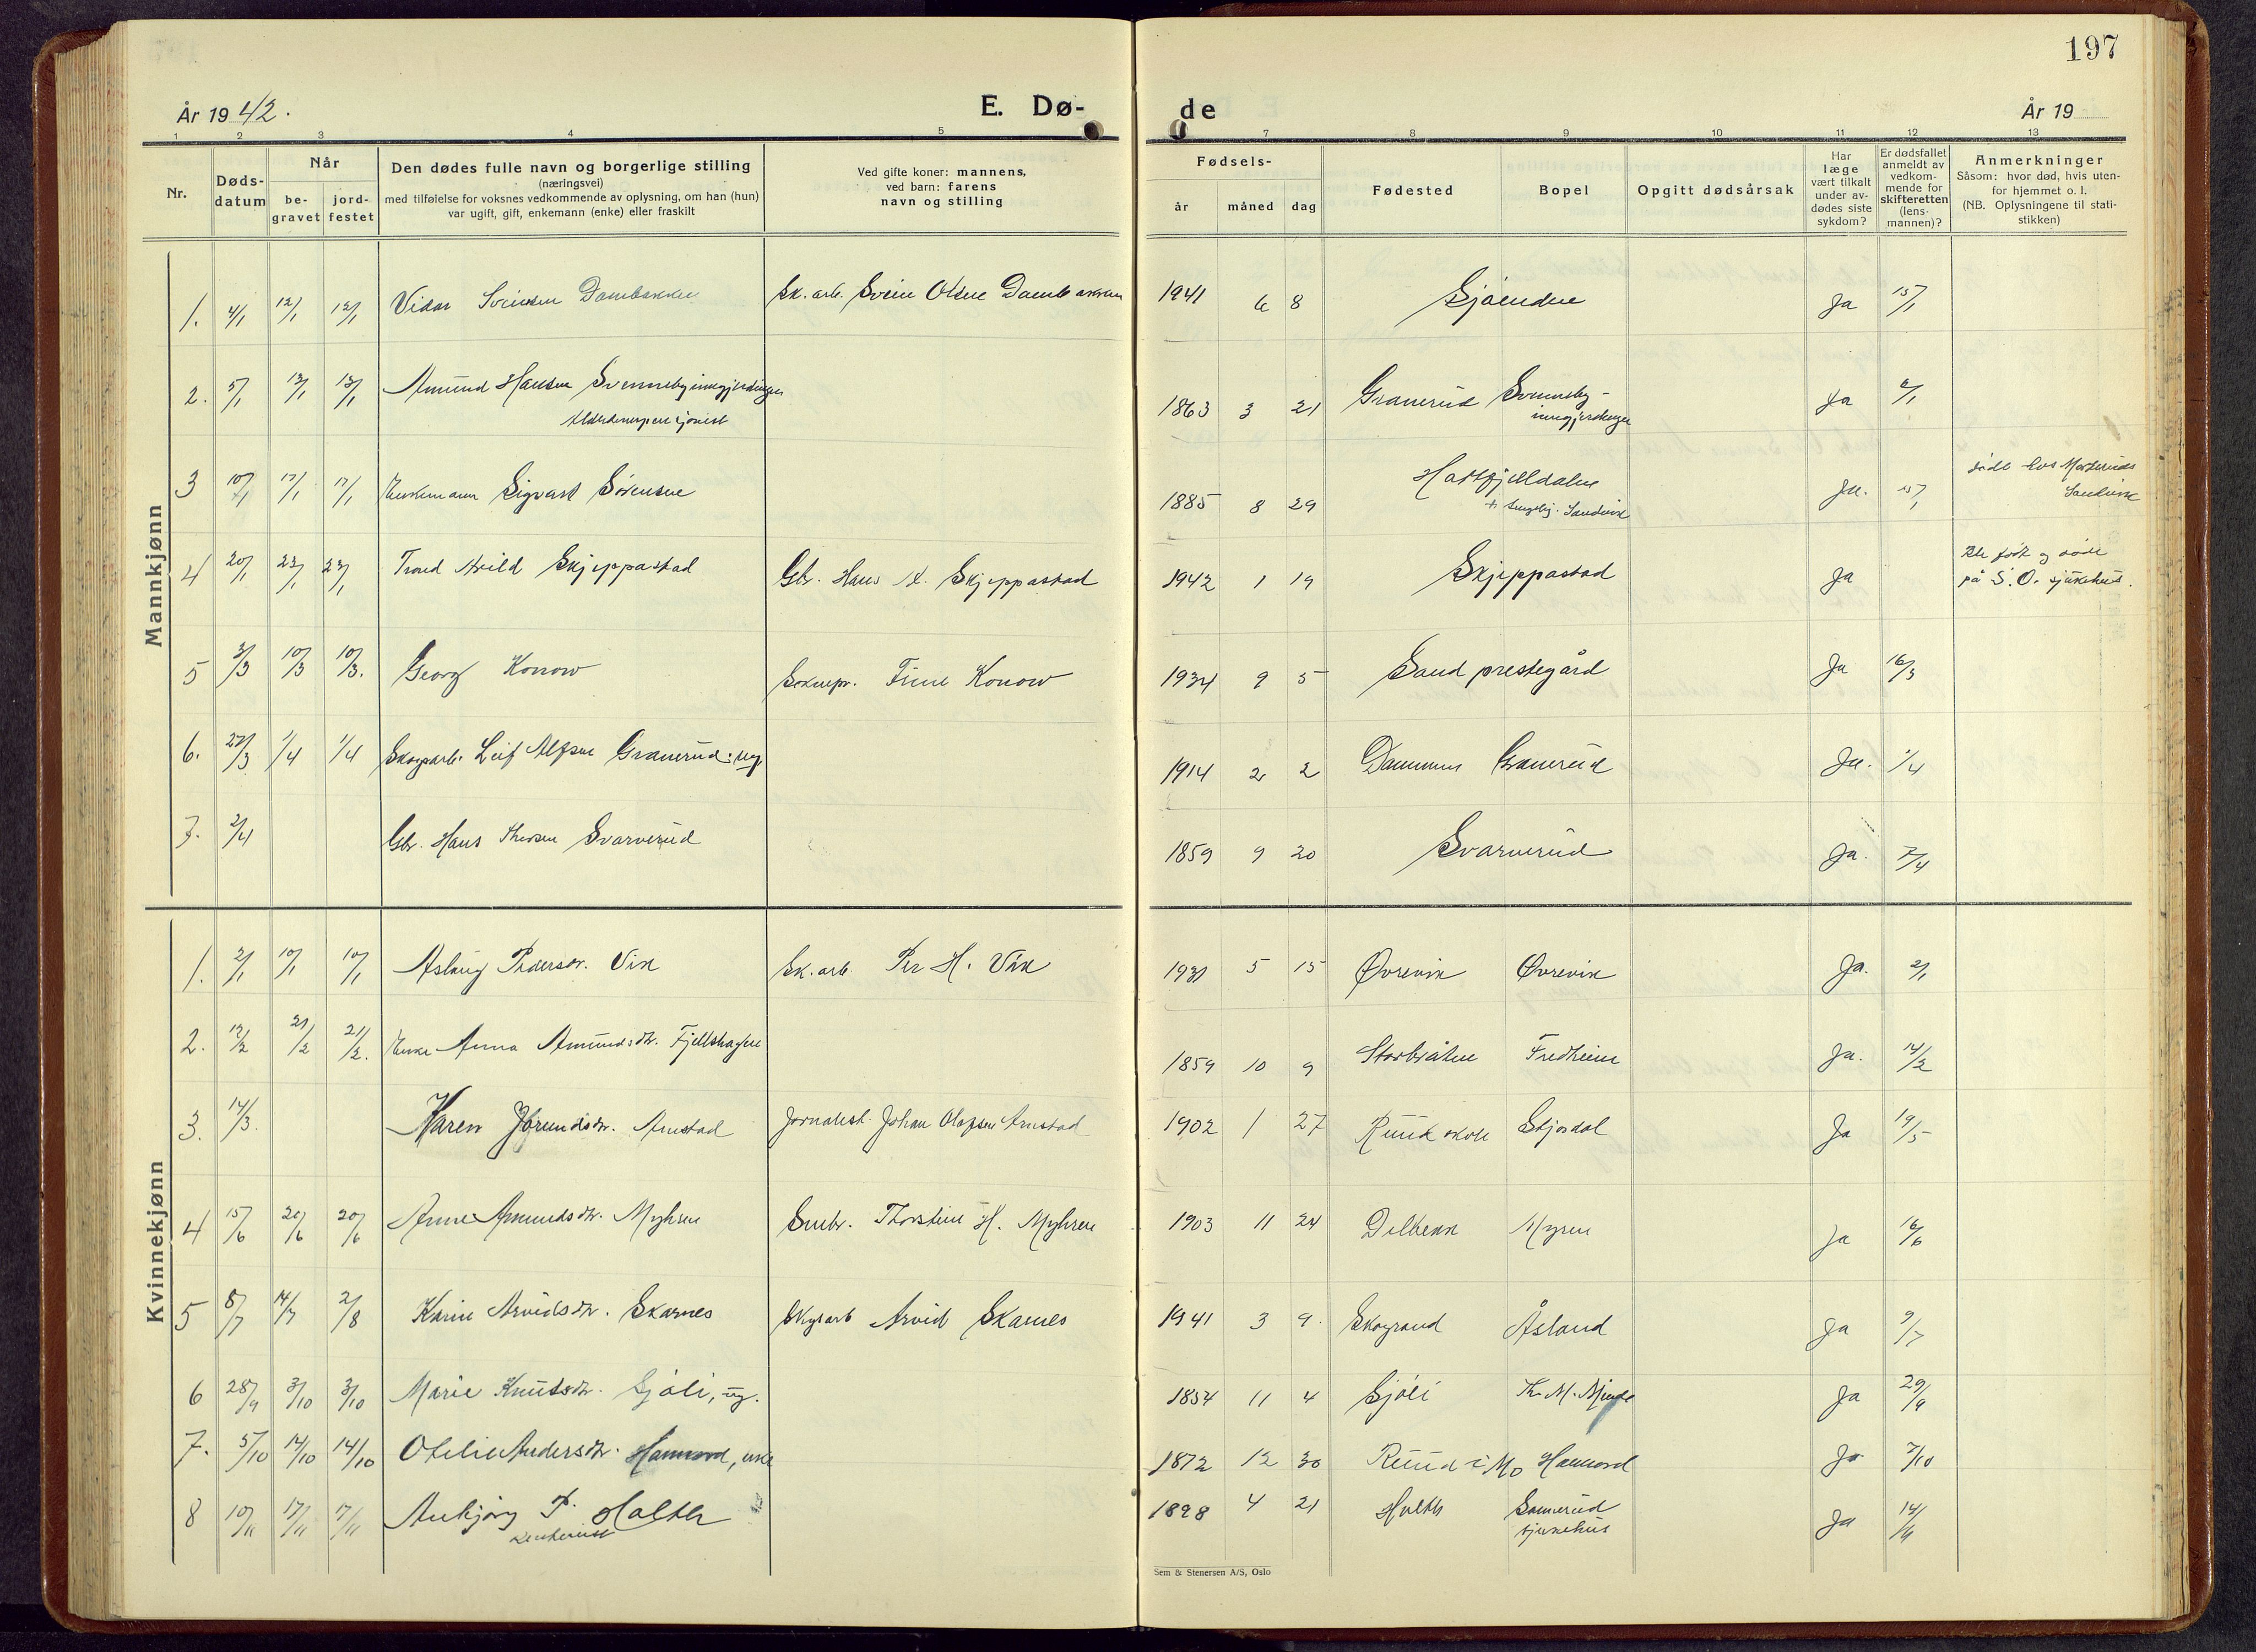 197
År 1942.
E. Dø-
de
År 19
1 2 3 4 5
7 8 9 10 11 12 13
Nr.
Døds-
datum
Når
be-
gravet
jord-
festet
Den dødes fulle navn og borgerlige stilling
(næringsvei)
med tilføielse for voksnes vedkommende av oplysning, om han (hun)
var ugift, gift, enkemann (enke) eller fraskilt
Ved gifte koner: mannens,
ved barn: farens
navn og stilling
Fødsels-
år måned dag
Fødested
Bopel
Opgitt dødsårsak
Har
læge
vært tilkalt
under av-
dødes siste
sykdom?
Er dødsfallet
anmeldt av
vedkom-
mende for
skifteretten
(lens-
mannen)?
Anmerkninger
Såsom: hvor død, hvis uten-
for hjemmet o. l.
(NB. Oplysningene til stati-
stikken)
Mannkjønn
1. 4/1 12/1 12/1 Vidar Sveinsen Dambakken Sk.arb. Svein Olsen Dambakken 1941 6 8 Sjøenden Ja 15/1
2. 5/1 13/1 13/1 Amund Hansen Svennebyinngjerdingen 1863 3 21 Granerud Svenneby- Ja 6/1
Alderdomspensjonist inngjerdingen
3 10/1 17/1 17/1 Enkemann Sigvart Sørensen 1885 8 29 Hattfjelldalen Ja. 15/1 døde hos
Sandvik Sandvik
4 20/1 23/1 23/1 Trond Arild Skjeppastad Gbr. Hans A. Skjeppastad 1942 1 19 Skjeppastad Ja Ble født og døde
på S. O. sjukehus.
5 3/3 10/3 10/3. Georg Konow Soknepr. Tine Konow 1934 9 5 Sand prestegård Ja 16/3
6. 27/3 1/4 1/4 Skogsarb. Leif Alfsen Granerud: ug. 1914 2 2 Dammen Granerud Ja. 1/4
7. 2/4 Gbr. Hans Thorsen Svarverud 1859 9 20 Svarverud Ja. 7/4
Kvinnekjønn
1. 2/1 10/1 10/1 Aslaug Pedersdr. Vik Sk.arb. Per H. Vik 1931 5 15 Øvrevik Øvrevik Ja. 2/1
2. 12/2 21/2 21/2. Enke Anna Amundsdtr. Fjellshagen 1859 10 9 Storbråten Fredheim Ja. 14/2
3. 14/3. Karen Jørundsdtr. Arnstad Jornalist. Johan Olafsen Arnstad 1902 1 27 Ruud skole Stjørdal Ja 19/5
4 15/6 20/6 20/6 Anne Amundsdtr. Myhren Smbr. Thorstein H. Myhren 1903 11 24 Dalbekk Myren Ja 16/6
5 8/7 14/7 2/8 Karin Arvidsdtr. Skarnes Skgsarb Arvid Skarnes 1941 3 9. Skogrand Åsland Ja 9/7
6 28/9 3/10 3/10 Marie Knutsdtr. Sjøli, ug. 1854 11 4 Sjøli Ja 29/9
7. 5/10 14/10 14/10 Otelie Andersdtr. Hammond, enke 1872 12 30 Ruud i Mo Ja 7/10
8 10/11 17/11 17/11 Anbjørg P. Holth 1898 4 21 Holth Sannerud Ja 14/11
sjukehus
Sem & Stenersen A/S, Oslo